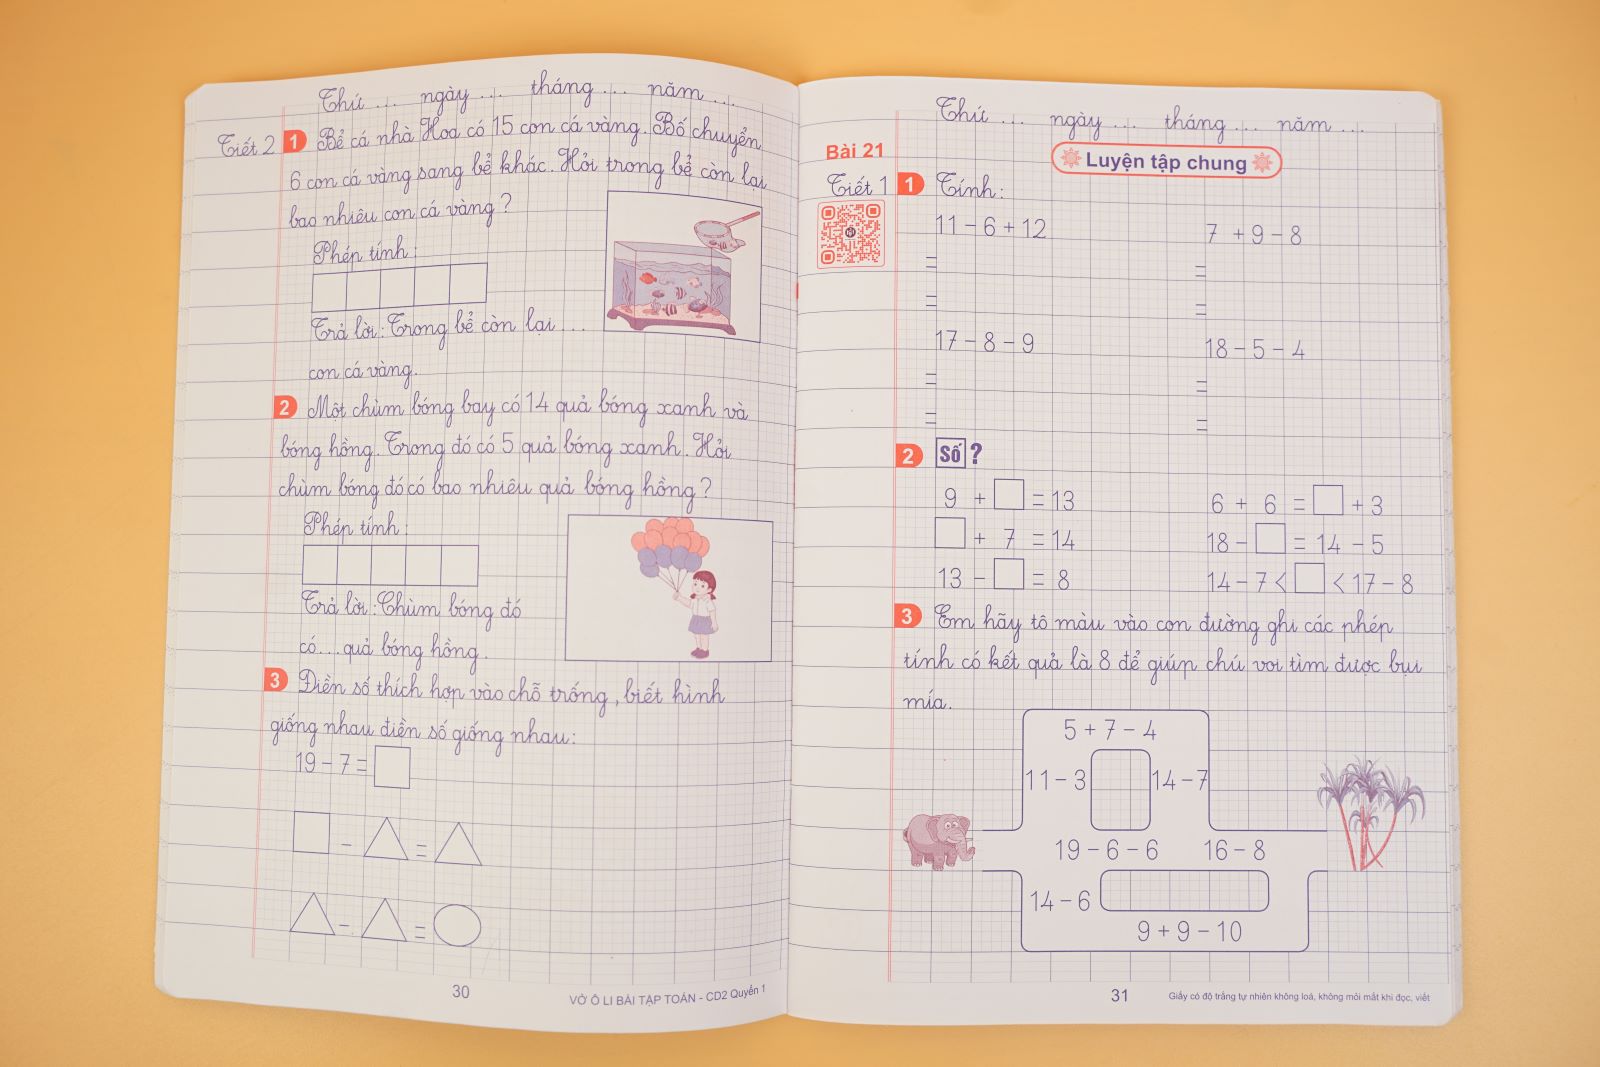 Thứ ... ngày ... tháng ... năm ...
Tiết 2 1 Bể cá nhà Hoa có 15 con cá vàng. Bố chuyển
6 con cá vàng sang bể khác. Hỏi trong bể còn lại
bao nhiêu con cá vàng ?
Phép tính :
Trả lời : Trong bể còn lại ...
con cá vàng.
2 Một chùm bóng bay có 14 quả bóng xanh và
bóng hồng. Trong đó có 5 quả bóng xanh. Hỏi
chùm bóng đó có bao nhiêu quả bóng hồng ?
Phép tính :
Trả lời : Chùm bóng đó
có ... quả bóng hồng.
3 Điền số thích hợp vào chỗ trống, biết hình
giống nhau điền số giống nhau :
19 - 7 = □
□ - △ = △
△ - △ = ○
30
VỞ Ô LI BÀI TẬP TOÁN - CD2 Quyển 1
Thứ ... ngày ... tháng ... năm ...
Bài 21 Luyện tập chung
Tiết 1 1 Tính :
11 - 6 + 12 7 + 9 - 8
= =
= =
17 - 8 - 9 18 - 5 - 4
= =
= =
2 Số ?
9 + □ = 13 6 + 6 = □ + 3
□ + 7 = 14 18 - □ = 14 - 5
13 - □ = 8 14 - 7 < □ < 17 - 8
3 Em hãy tô màu vào con đường ghi các phép
tính có kết quả là 8 để giúp chú voi tìm được bụi
mía.
5 + 7 - 4
11 - 3 14 - 7
19 - 6 - 6 16 - 8
14 - 6
9 + 9 - 10
31
Giấy có độ trắng tự nhiên không loá, không mỏi mắt khi đọc, viết